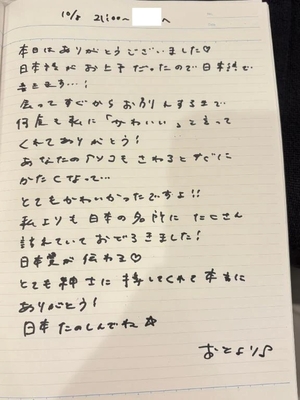 10/8 21:00〜 へ
本日はありがとうございました♡
日本語がお上手だったので日本語で
書きます…!
会ってすぐからお別れするまで
何度も私に「かわいい」って言って
くれてありがとう!
あなたのアソコもさわるとすぐに
かたくなって…
とてもかわいかったですよ!!
私よりも日本の名所にたくさん
訪れていておどろきました!
日本愛が伝わる♡
とても紳士に接してくれて本当に
ありがとう!
日本たのしんでね☆
おとより♪